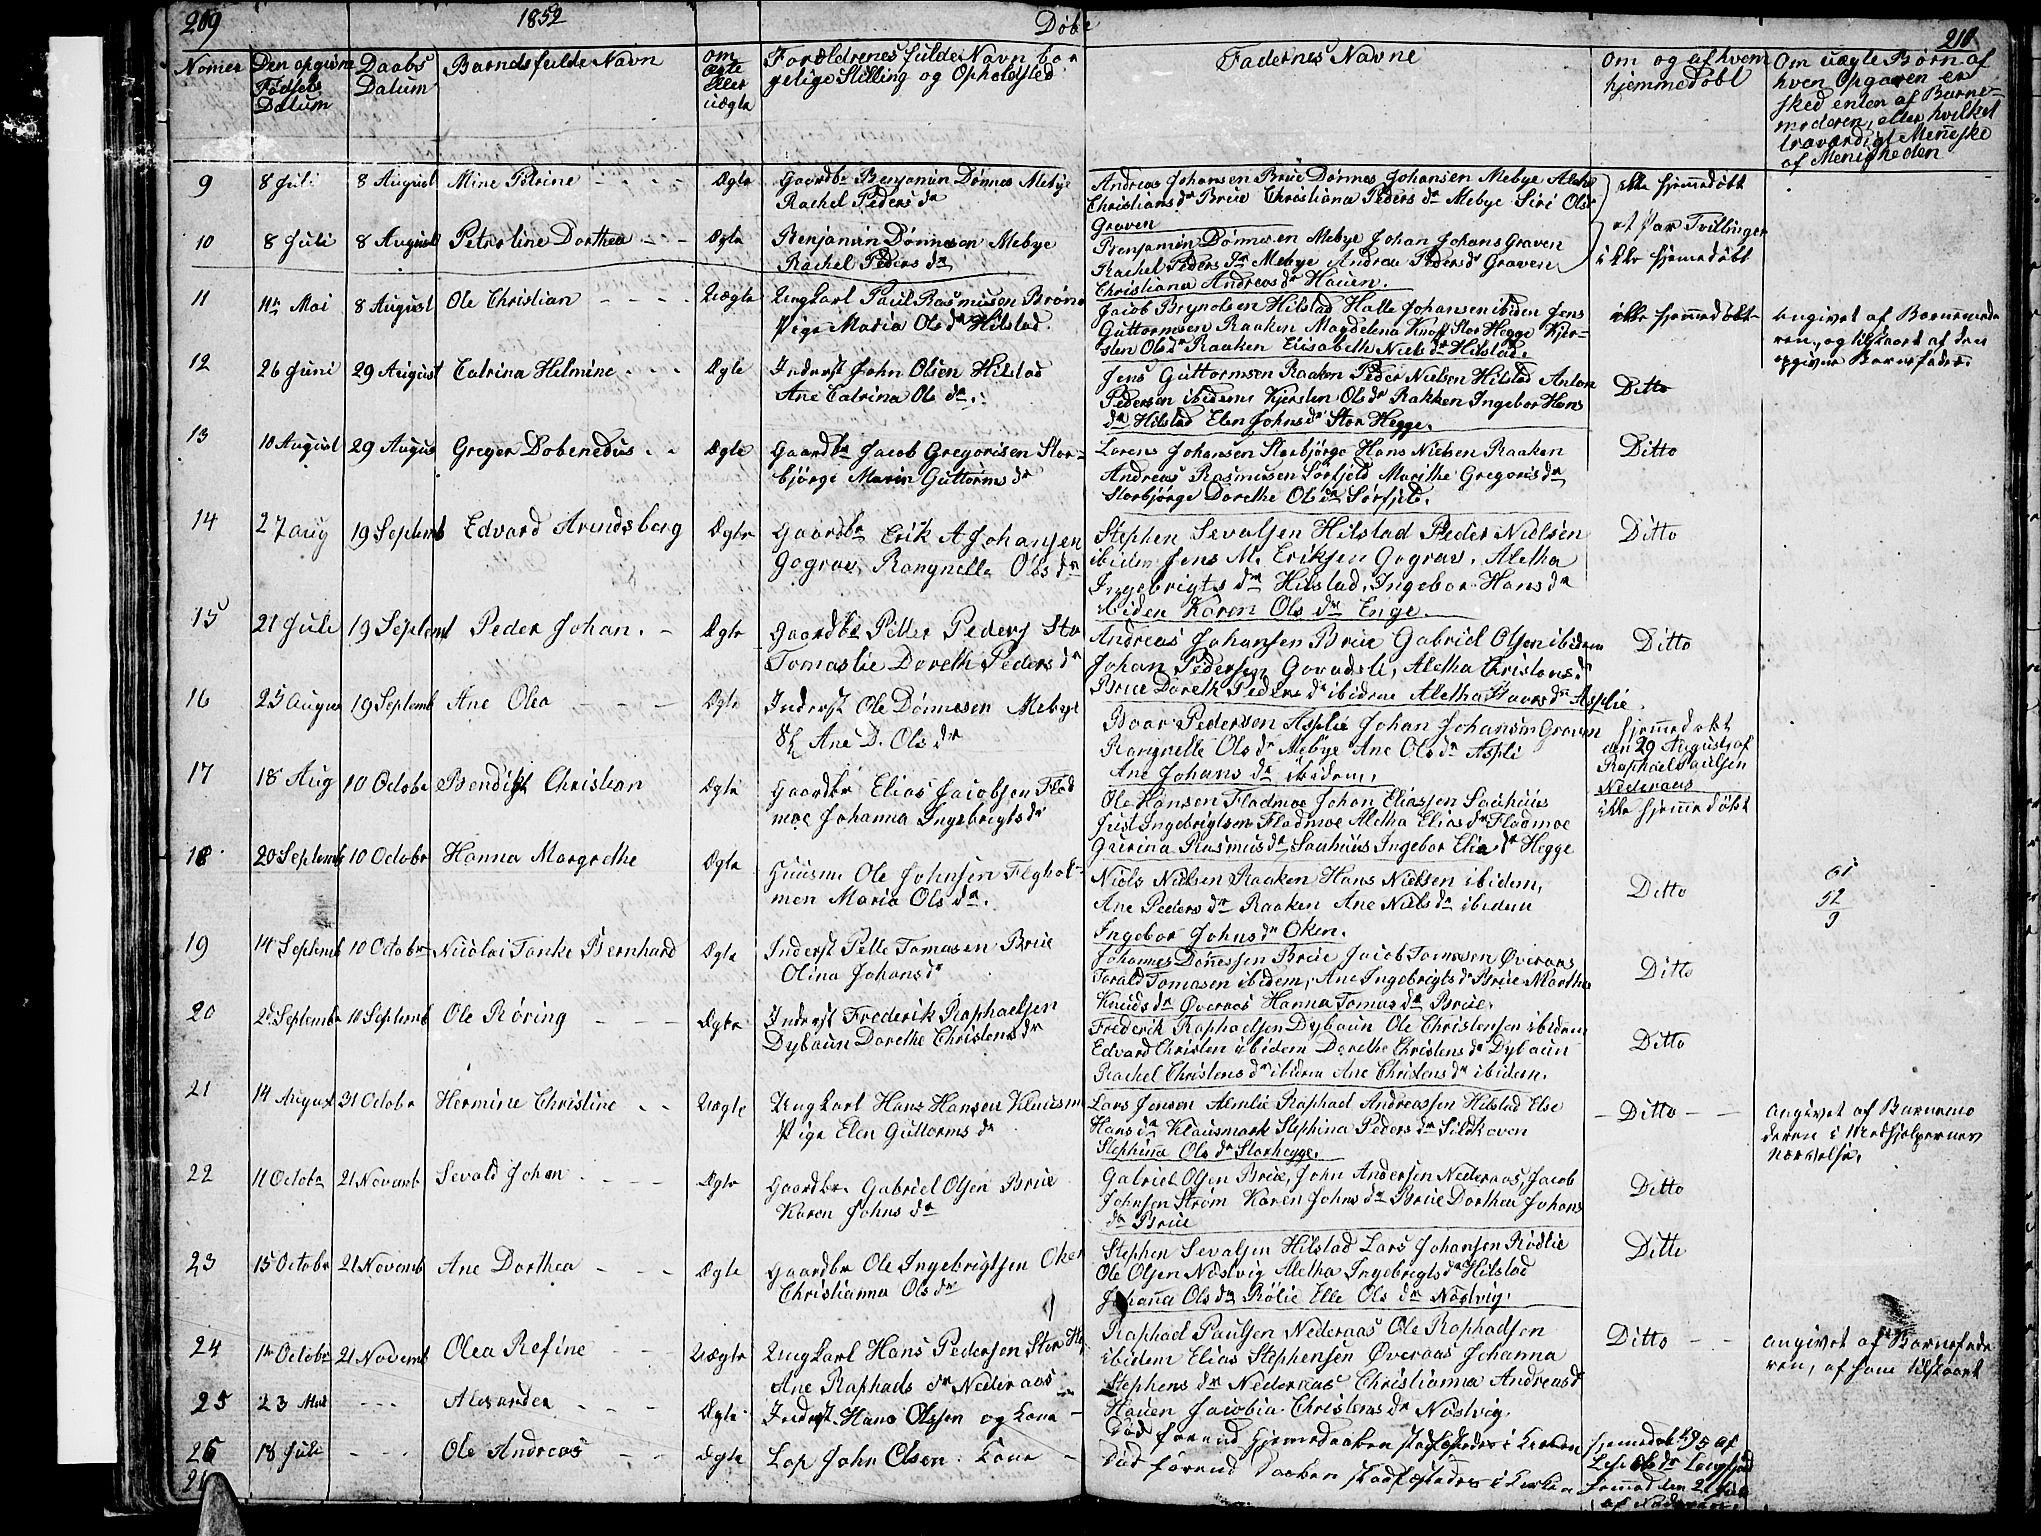 209
1852
Døbe
210
Nomer
Den opgivne Fødsels Datum
Daabs Datum
Barnds fulde Navn
om Ægte eller uægte
Forældrenes fulde Navn bor
gelige Stilling og Opholdsted
Fadernes Navne
Om og af hvem
hjemmedøbt
Om uægte Børn af
hven Opgaven er
sked enten af Barne-
moderen, eller hvilket
troværdigt Menneske
af Menigheden
9 8 Juli 8 August Mine Petrine Ægte Gaardbr Benjamin Dønnes Mebye
Rachel Peders dr
Andreas Johansen Brue Dønnes Johansen Mebye Aleth
Christians dr Brue Christiana Peders dr Mebye Siri Ols
Graven
ikke hjemmedøbt
et Par Tvillinger
10 8 Juli 8 August Petroline Dorthea Ægte Benjamin Dønnesen Mebye
Rachel Peders dr
Benjamin Dønnesen Mebye Johan Johans Graven
Rachel Peders dr Mebye Andrea Peders dr Graven
Christiana Andreas dr Hauen.
ikke hjemedøbt
11 11te Mai 8 August Ole Christian Uægte Ungkarl Paul Rasmusen Brøn
Pige Maria Ols dr Hilstad
Jacob Brynolsen Hilstad Halle Johansen ibiden Jens
Guttormsen Raaken Magdelena Knoff Stor Hegge Kjer-
sten Ols dr Raaken Elisabeth Niels dr Hilstad.
ikke hjemmedøbt
angivet af Barnemode
ren, og tilstaaet af den
opgivne Barnefader
12 26 Juni 29 August Catrina Helmine Ægte Inderst John Olsen Hilstad
Ane Catrina Ols dr.
Jens Guttormsen Raaken Peder Nielsen Hilstad Anton
Pedersen ibidem Kjersten Ols dr Rakken Ingebor Hans
dr Hilstad Elen Johns dr Stor Hegge.
Ditto
13 10 August 29 Augus Greger Dobenedus Ægte Gaardbr Jacob Gregorisen Stor-
bjørge Maren Guttorms dr
Lorens Johansen Storbjørge Hans Nielsen Raaken
Andreas Rasmusen Sørfjeld Marithe Gregoris dr
Storbjørge Dorethe Ols dr Sørfjeld.
Ditto
14 27 aug 19 Septemb Edvard Arendsberg Ægte Gaardbr Erik A Johansen
Gograv, Rangnelle Ols dr
Stephen Sevalsen Hilstad Peder Nielsen
ibidem Jens M. Eriksen Gograv, Aletha
Ingebrigts dr Hilstad, Ingebor Hans dr
ibiden Karen Ols dr Enge.
Ditto
15 21 Juli 19 Septemb Peder Johan. Ægte Gaardbr Petter Peders Sto
Tomaslie Doreth Peders dr
Andreas Johansen Brue Gabriel Olsen ibidem
Johan Pedersen Aletha Christens dr
Brue Doreth Peders dr ibidem Aletha Haars dr Asplie.
Ditto
16 25 Augus 19 Septemb Ane Olea Ægte Inderst Ole Dønnesen Mebye
Ane D. Ols dr
Pedersen Asplie Johan Johansen Graven
Rangnelle Ols dr Mebye Ane Ols dr Aspli
Ane Johans dr ibidem,
hjemmedøbt
den 29 August af
Raphael Paulsen
Nederaas
17 18 Aug 10 Octobr Bendikt Christian Ægte Gaardbr Elias Jacobsen Flad
moe Johanna Ingebrigts dr
Ole Hansen Fladmoe Johan Eliassen Sauhuus
Just Ingebrigtsen Fladmoe Aletha Elias dr Fladmoe
Gurina Rasmus dr Sauhuus Ingebor Elia dr Hegge
ikke hjemmedøbt
18 20 Septemb 10 Octobr Hanna Margrethe Ægte Huusm Ole Johnsen Fleghol-
men Maria Ols dr.
Niels Nielsen Raaken Hans Nielsen ibidem,
Ane Peders dr Raaken Ane Niels dr ibidem
Ingebor Johns dr Oken.
Ditto
61
52
9
19 14 Septemb 10 Octobr Nicolai Tanke Bernhard Ægte Inderst Pelle Tomasen Brue
Olina Johans dr
Johannes Dønnessen Brue Jacob Tomasen Øveraas
Torald Tomasen ibidem, Ane Ingebrigts dr Brue Marthe
Knuds dr Øveraas Hanna Tomas dr Brue.
Ditto
20 2d Septembr 10 Septemb Ole Røring Ægte Inderst Frederik Raphaelsen
Dybaun Dorethe Christens dr
Frederik Raphaelsen Dybaun Ole Christensen ibidem
Edvard Christen ibidem Dorethe Christens dr Dybaun
Rachel Christens dr ibidem Ane Christens dr ibidem.
Ditto
21 14 August 31 Octobr Hermine Christine Uægte Ungkarl Hans Hansen Klausm
Pige Elen Guttorms dr
Lars Jensen Almlie Raphael Andreassen Hilstad Else
Hans dr Klausmark Stephina Peders dr Sildhoven
Stephina Ols dr Storhegge.
Ditto
angivet af Barnemo
deren i Medhjelpernes
nærvelse.
22 11 Octobr 21 Novemb Sevald Johan Ægte Gaardbr. Gabriel Olsen Brue
Karen Johns dr
Gabriel Olsen Brue, John Andersen Nederaas, Jacob
Johnsen Strøm Karen Johns dr Brue Dorthea Johans
dr Brue
Ditto
23 15 Octobr 21 Novemb Ane Dorthea Ægte Gaardbr Ole Ingebrigtsen Oken
Christianna Ols dr
Stephen Sevalsen Hilstad Lars Johansen Rødlie
Ole Olsen Nøstvig Aletha Ingebrigts dr Hilstad
Johanna Ols dr Rølie Elle Ols dr Nøstvig.
Ditto
24 1te Octobr 21 Novemb Olea Refine Uægte Ungkarl Hans Pedersen Stor
Ane Raphaels dr Nederaas
Raphael Paulsen Nederaas Ole Raphaelsen
ibidem Elias Stephensen Øveraas Johanna
Stephens dr Nederaas Christianna Andreas d
Hauen Jacobia Christens dr Nøstvig
Ditto
angivet af Barnefade
ren, af ham tilstaaet
25 23 Mai Alexander Ægte Inderst Hans Olsen og Kone
Død forend hjemedaaben stadfæstedes i Kirken
hjemedøbt af
26 18 Juli Ole Andreas Ægte Lap John Olsen Kone
Død forend Daaben stadfæstedes i Kirken